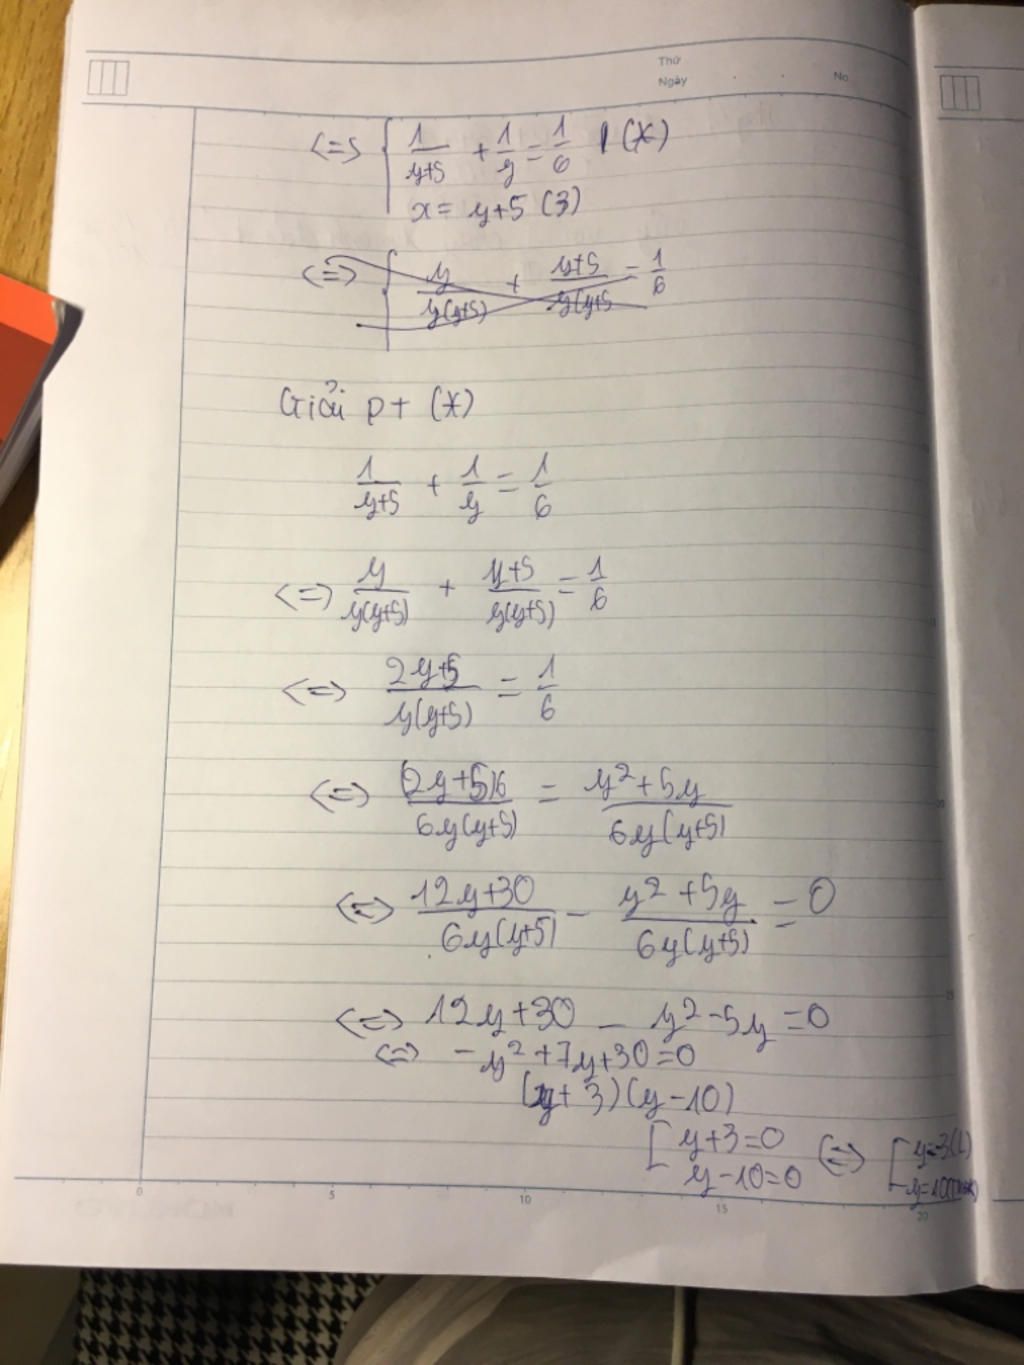 Thứ
Ngày No.
<=> { 1/(y+5) + 1/y = 1/6 (*)
x = y+5 (3)
<=> { y/(y(y+5)) + (y+5)/(y(y+5 = 1/6
Giải pt (*)
1/(y+5) + 1/y = 1/6
<=> y/(y(y+5)) + (y+5)/(y(y+5)) = 1/6
<=> (2y+5)/(y(y+5)) = 1/6
<=> (2y+5)6/(6y(y+5)) = (y²+5y)/(6y(y+5))
<=> (12y+30)/(6y(y+5)) - (y²+5y)/(6y(y+5)) = 0
<=> 12y+30 - y²-5y = 0
<=> -y²+7y+30=0
(y+3)(y-10)
[ y+3=0 <=> [ y=-3(L)
y-10=0 y=10
0 5 10 15 20